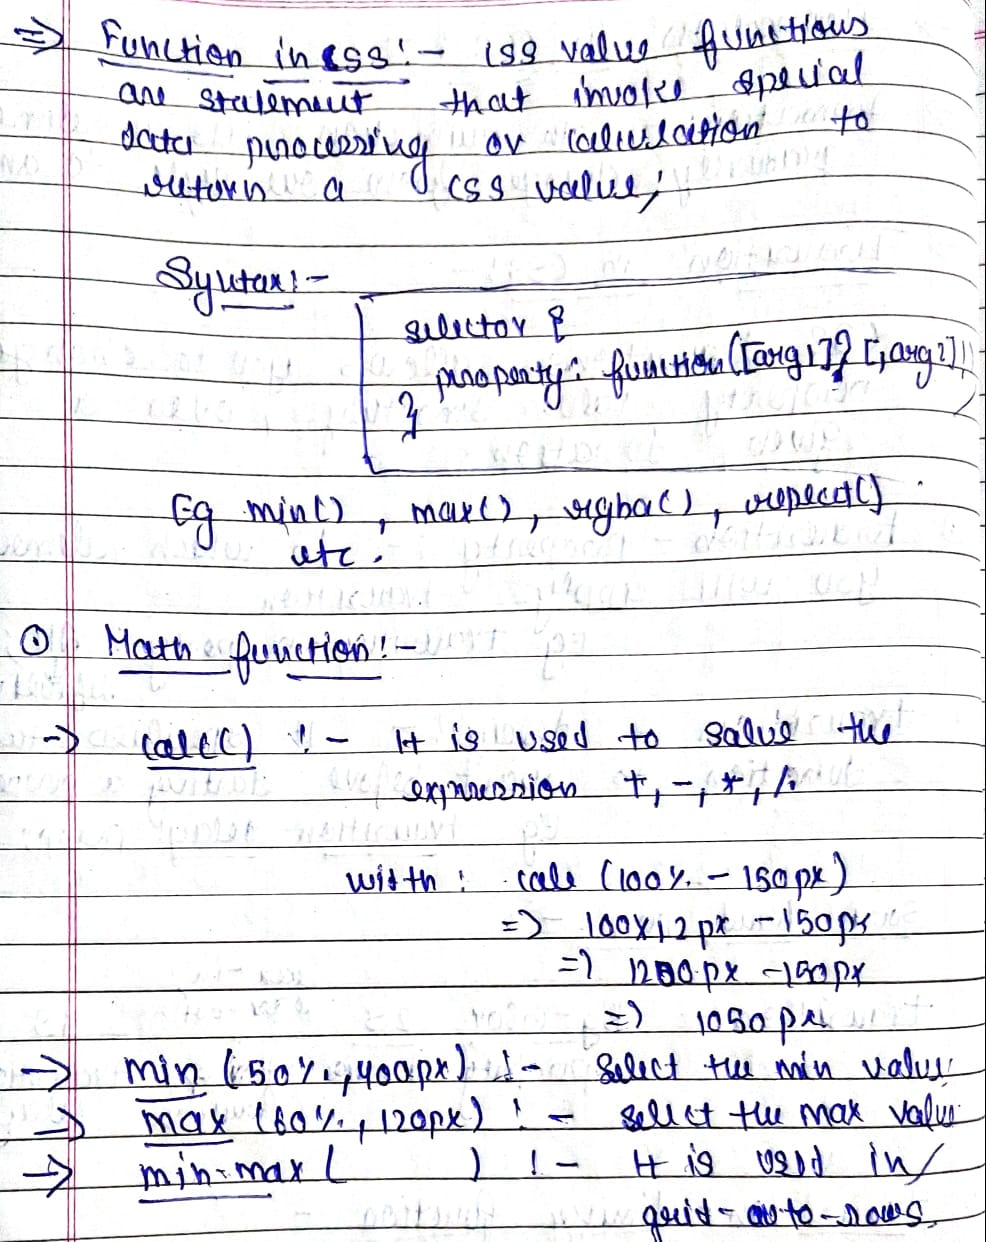 ⇒ Function in css:- css value functions
are statement that invoke special
data processing or calculation to
return a css value;
Syntax:-
selector {
property: function([arg1]? [,arg2])
}
Eg min(), max(), rgba(), repeat()
etc.
① Math function:-
→ calc() :- It is used to solve the
expression +, -, *, /.
width: calc (100% - 150px)
=> 100x12px - 150px
=> 1200px - 150px
=> 1050px
→ min (50%, 400px) :- Select the min value
→ max (60%, 120px) :- select the max value
→ min-max ( ) :- It is used in
grid-auto-rows.